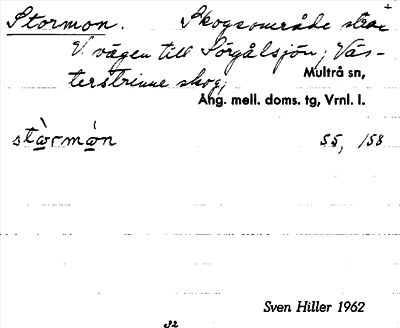 Stormon. Skogsområde strax
V. vägen till Sörgålsjön; Väs-
terstrinne skog;
Multrå sn,
Ång. mell. doms. tg, Vrnl. l.
stòrmón 55, 158
Sven Hiller 1962
32